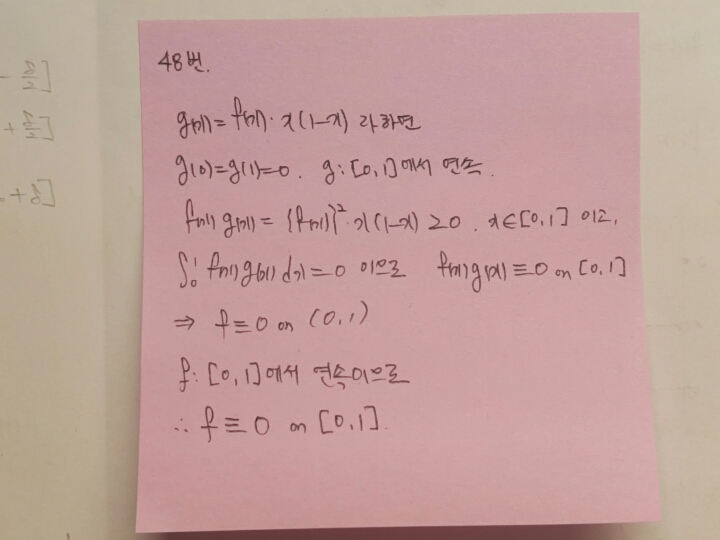 48번.
g(x)=f(x)·x(1-x) 라하면
g(0)=g(1)=0. g:[0,1]에서 연속.
f(x)g(x)={f(x)}²·x(1-x)≥0. x∈[0,1] 이고,
∫₀¹ f(x)g(x)dx=0 이므로 f(x)g(x)≡0 on [0,1]
⇒ f≡0 on (0,1)
f:[0,1]에서 연속이므로
∴ f≡0 on [0,1].